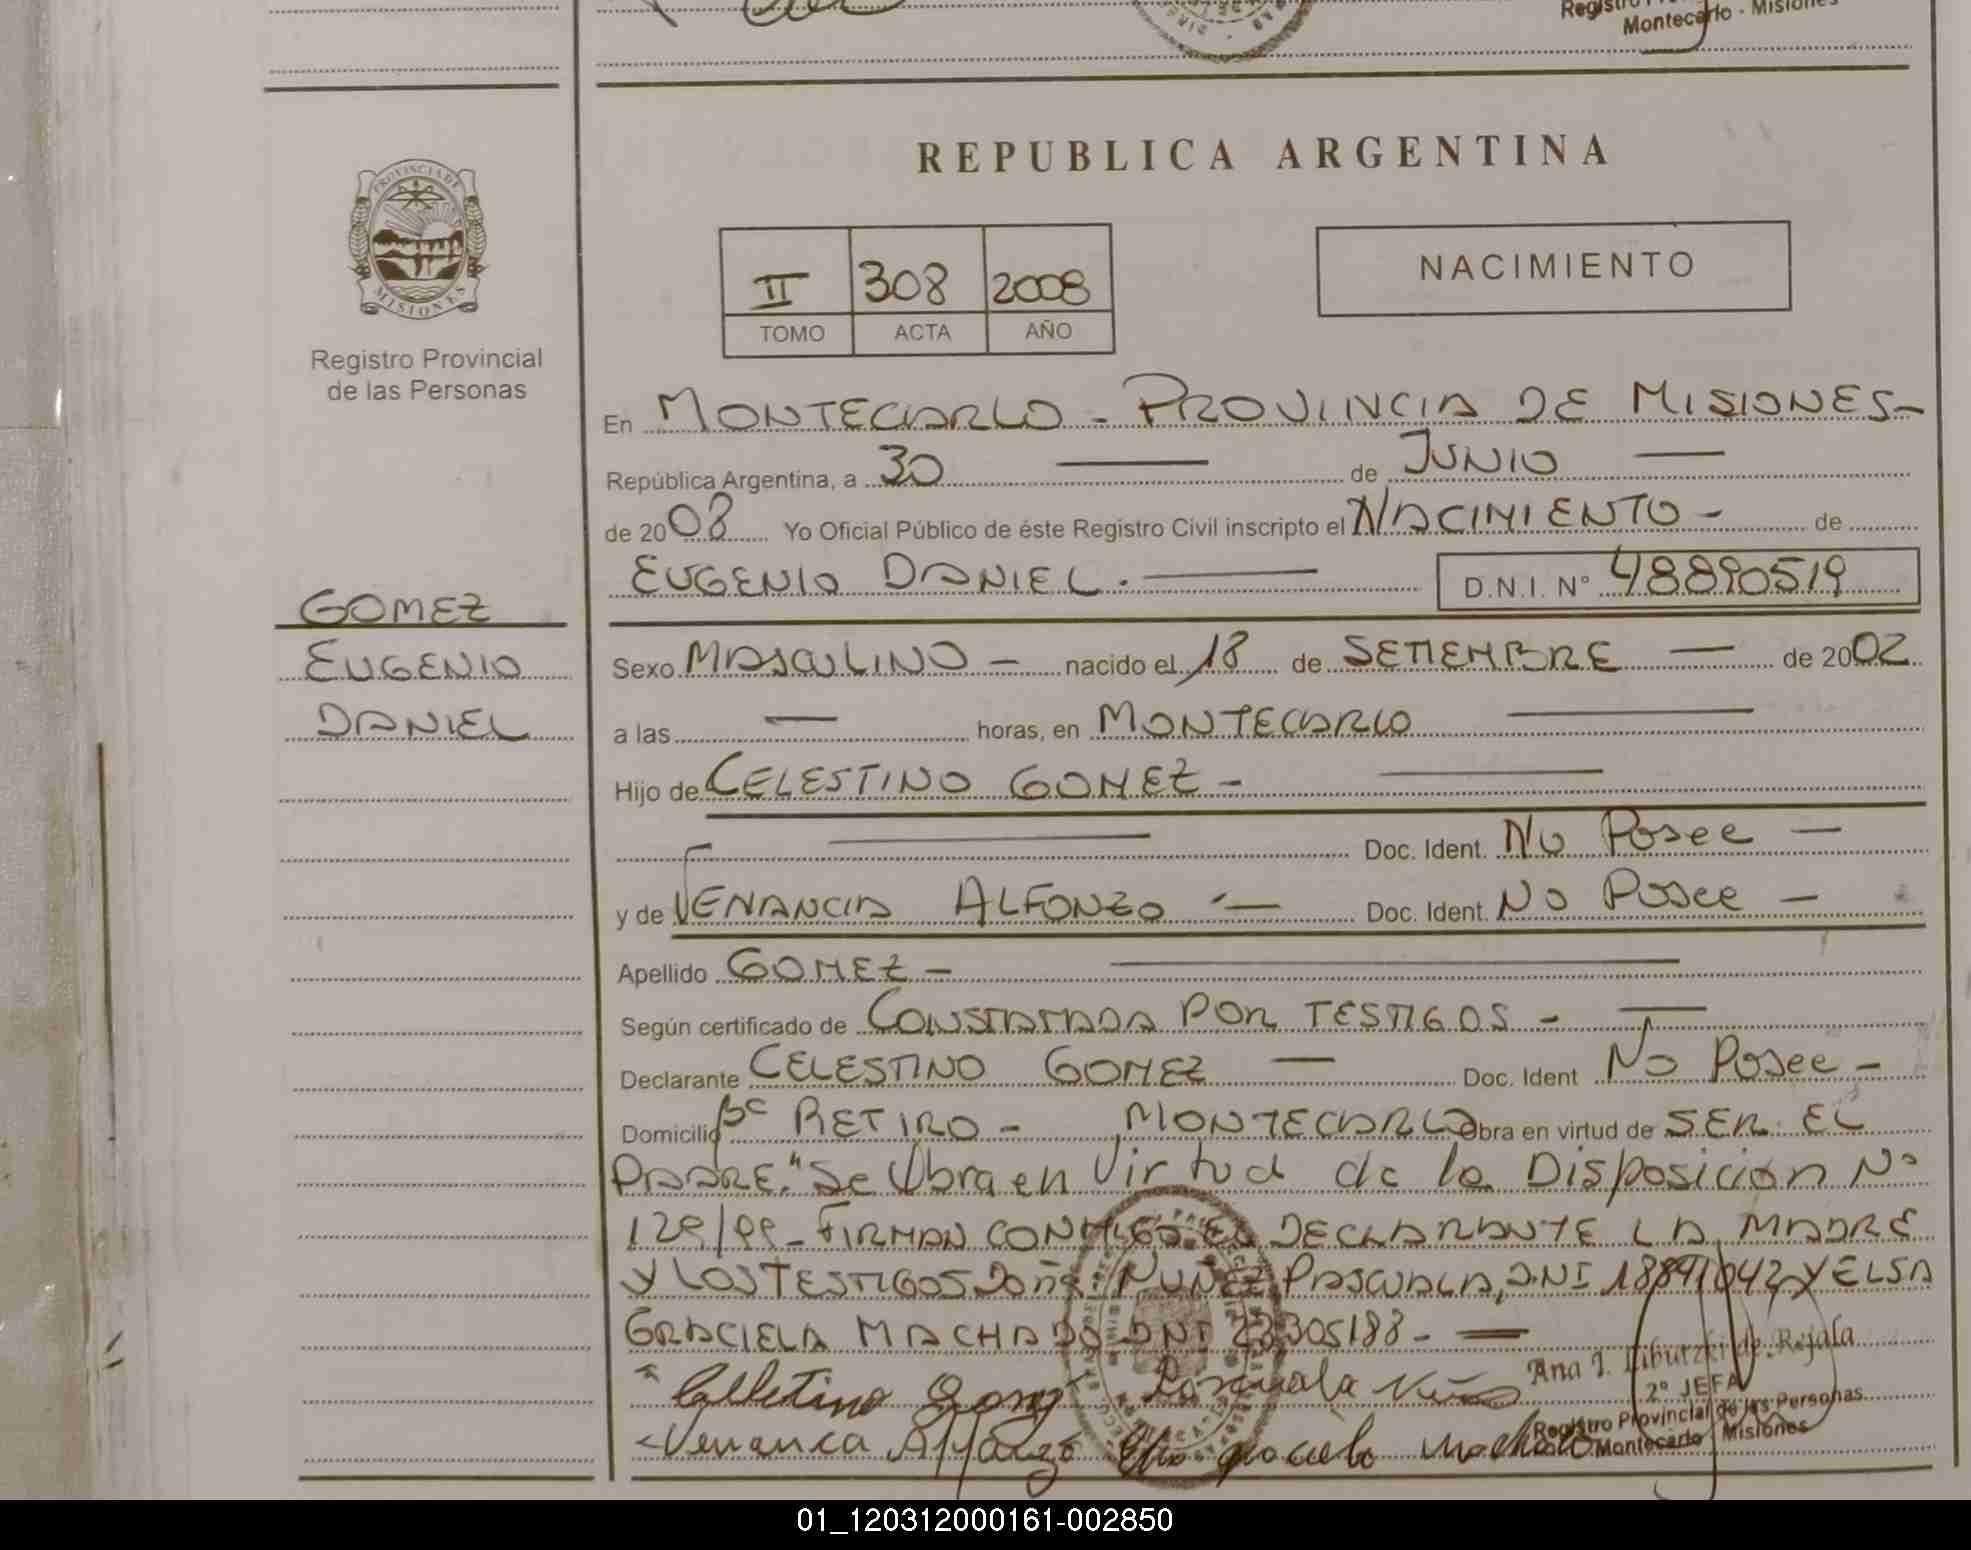 Registro
Montecarlo - Misiones
REPUBLICA ARGENTINA
PROVINCIA DE
MISIONES
Registro Provincial
de las Personas
II 308 2008
TOMO ACTA AÑO
NACIMIENTO
En MONTECARLO - PROVINCIA DE MISIONES-
República Argentina, a 30 — de JUNIO —
de 2008 Yo Oficial Público de éste Registro Civil inscripto el NACIMIENTO - de
EUGENIO DANIEL. — D.N.I. N° 48890519
GOMEZ
EUGENIO
DANIEL
Sexo MASCULINO - nacido el 18 de SETIEMBRE — de 2002
a las — horas, en MONTECARLO —
Hijo de CELESTINO GOMEZ - —
— Doc. Ident. No Posee —
y de VENANCIA ALFONZO - — Doc. Ident. No Posee —
Apellido GOMEZ - —
Según certificado de CONSTATADA POR TESTIGOS - —
Declarante CELESTINO GOMEZ — Doc. Ident No Posee -
Domicilio Bº RETIRO - MONTECARLO Obra en virtud de SER EL
PADRE. "Se Obra en Virtud de la Disposición Nº
129/99 - FIRMAN CONMIGO EL DECLARANTE LA MADRE
Y LOS TESTIGOS Doña NUÑEZ PASCUALA, DNI 18841042 Y ELSA
GRACIELA MACHADO DNI 23305188 - —
Celletino Gomz Pascuala Nuñez
Venancia Alfonzo Elsa graciela Machado
Ana I. de Rejala
2º JEFA
Registro Provincial de las Personas
Montecarlo - Misiones
01_120312000161-002850